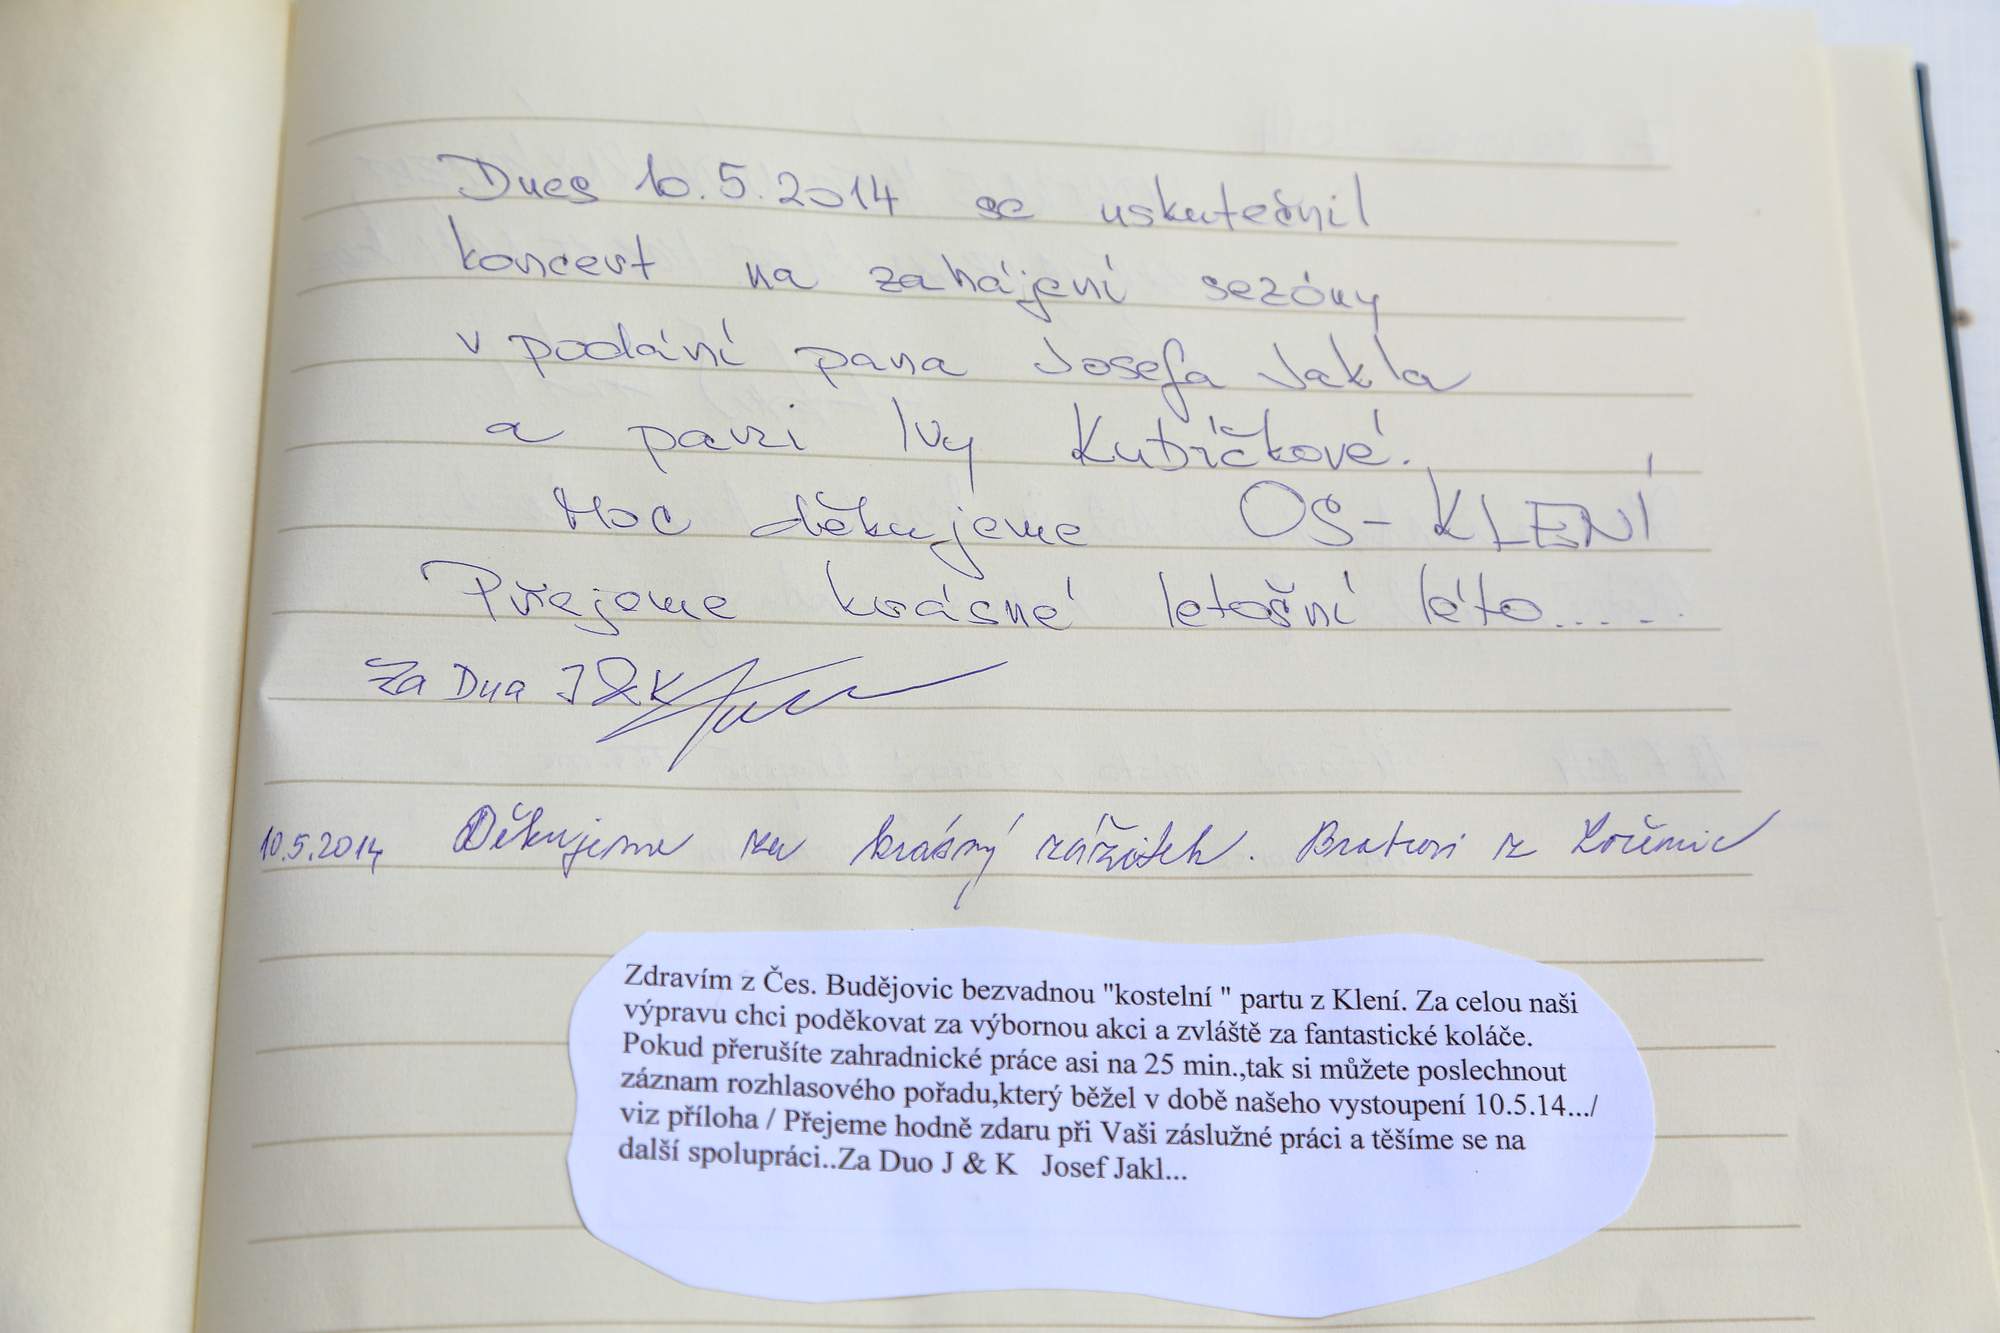 Dnes 10.5.2014 se uskutečnil
koncert na zahájení sezóny
v podání pana Josefa Jakla
a paní Ivy Kubíčkové.
Moc děkujeme OS-KLENÍ
Přejeme krásné letošní léto.....
Za Dua J&K
10.5.2014 Děkujeme za krásný zážitek. z
Zdravím z Čes. Budějovic bezvadnou "kostelní " partu z Klení. Za celou naši
výpravu chci poděkovat za výbornou akci a zvláště za fantastické koláče.
Pokud přerušíte zahradnické práce asi na 25 min.,tak si můžete poslechnout
záznam rozhlasového pořadu,který běžel v době našeho vystoupení 10.5.14.../
viz příloha / Přejeme hodně zdaru při Vaši záslužné práci a těšíme se na
další spolupráci..Za Duo J & K Josef Jakl...